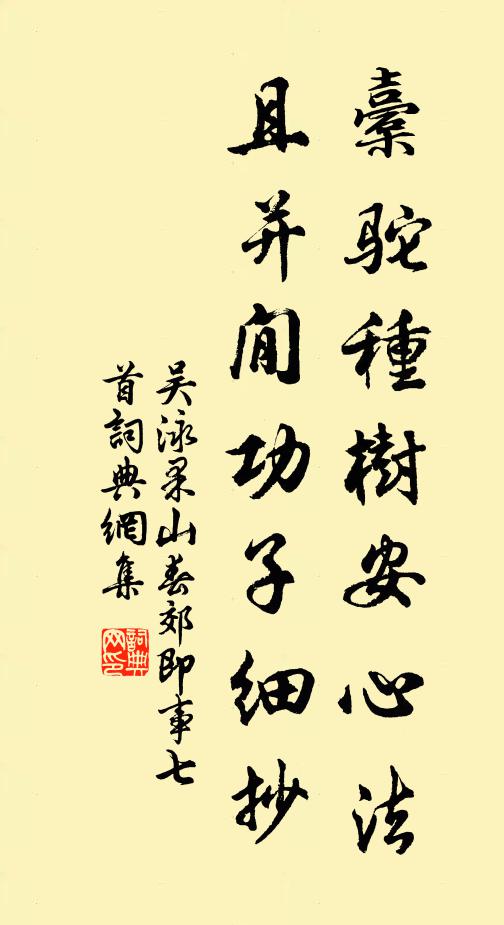 橐駝種樹安心法
且并閒功子細抄
吴泳果山春郊即事七
首詞典網集
詞典
网印